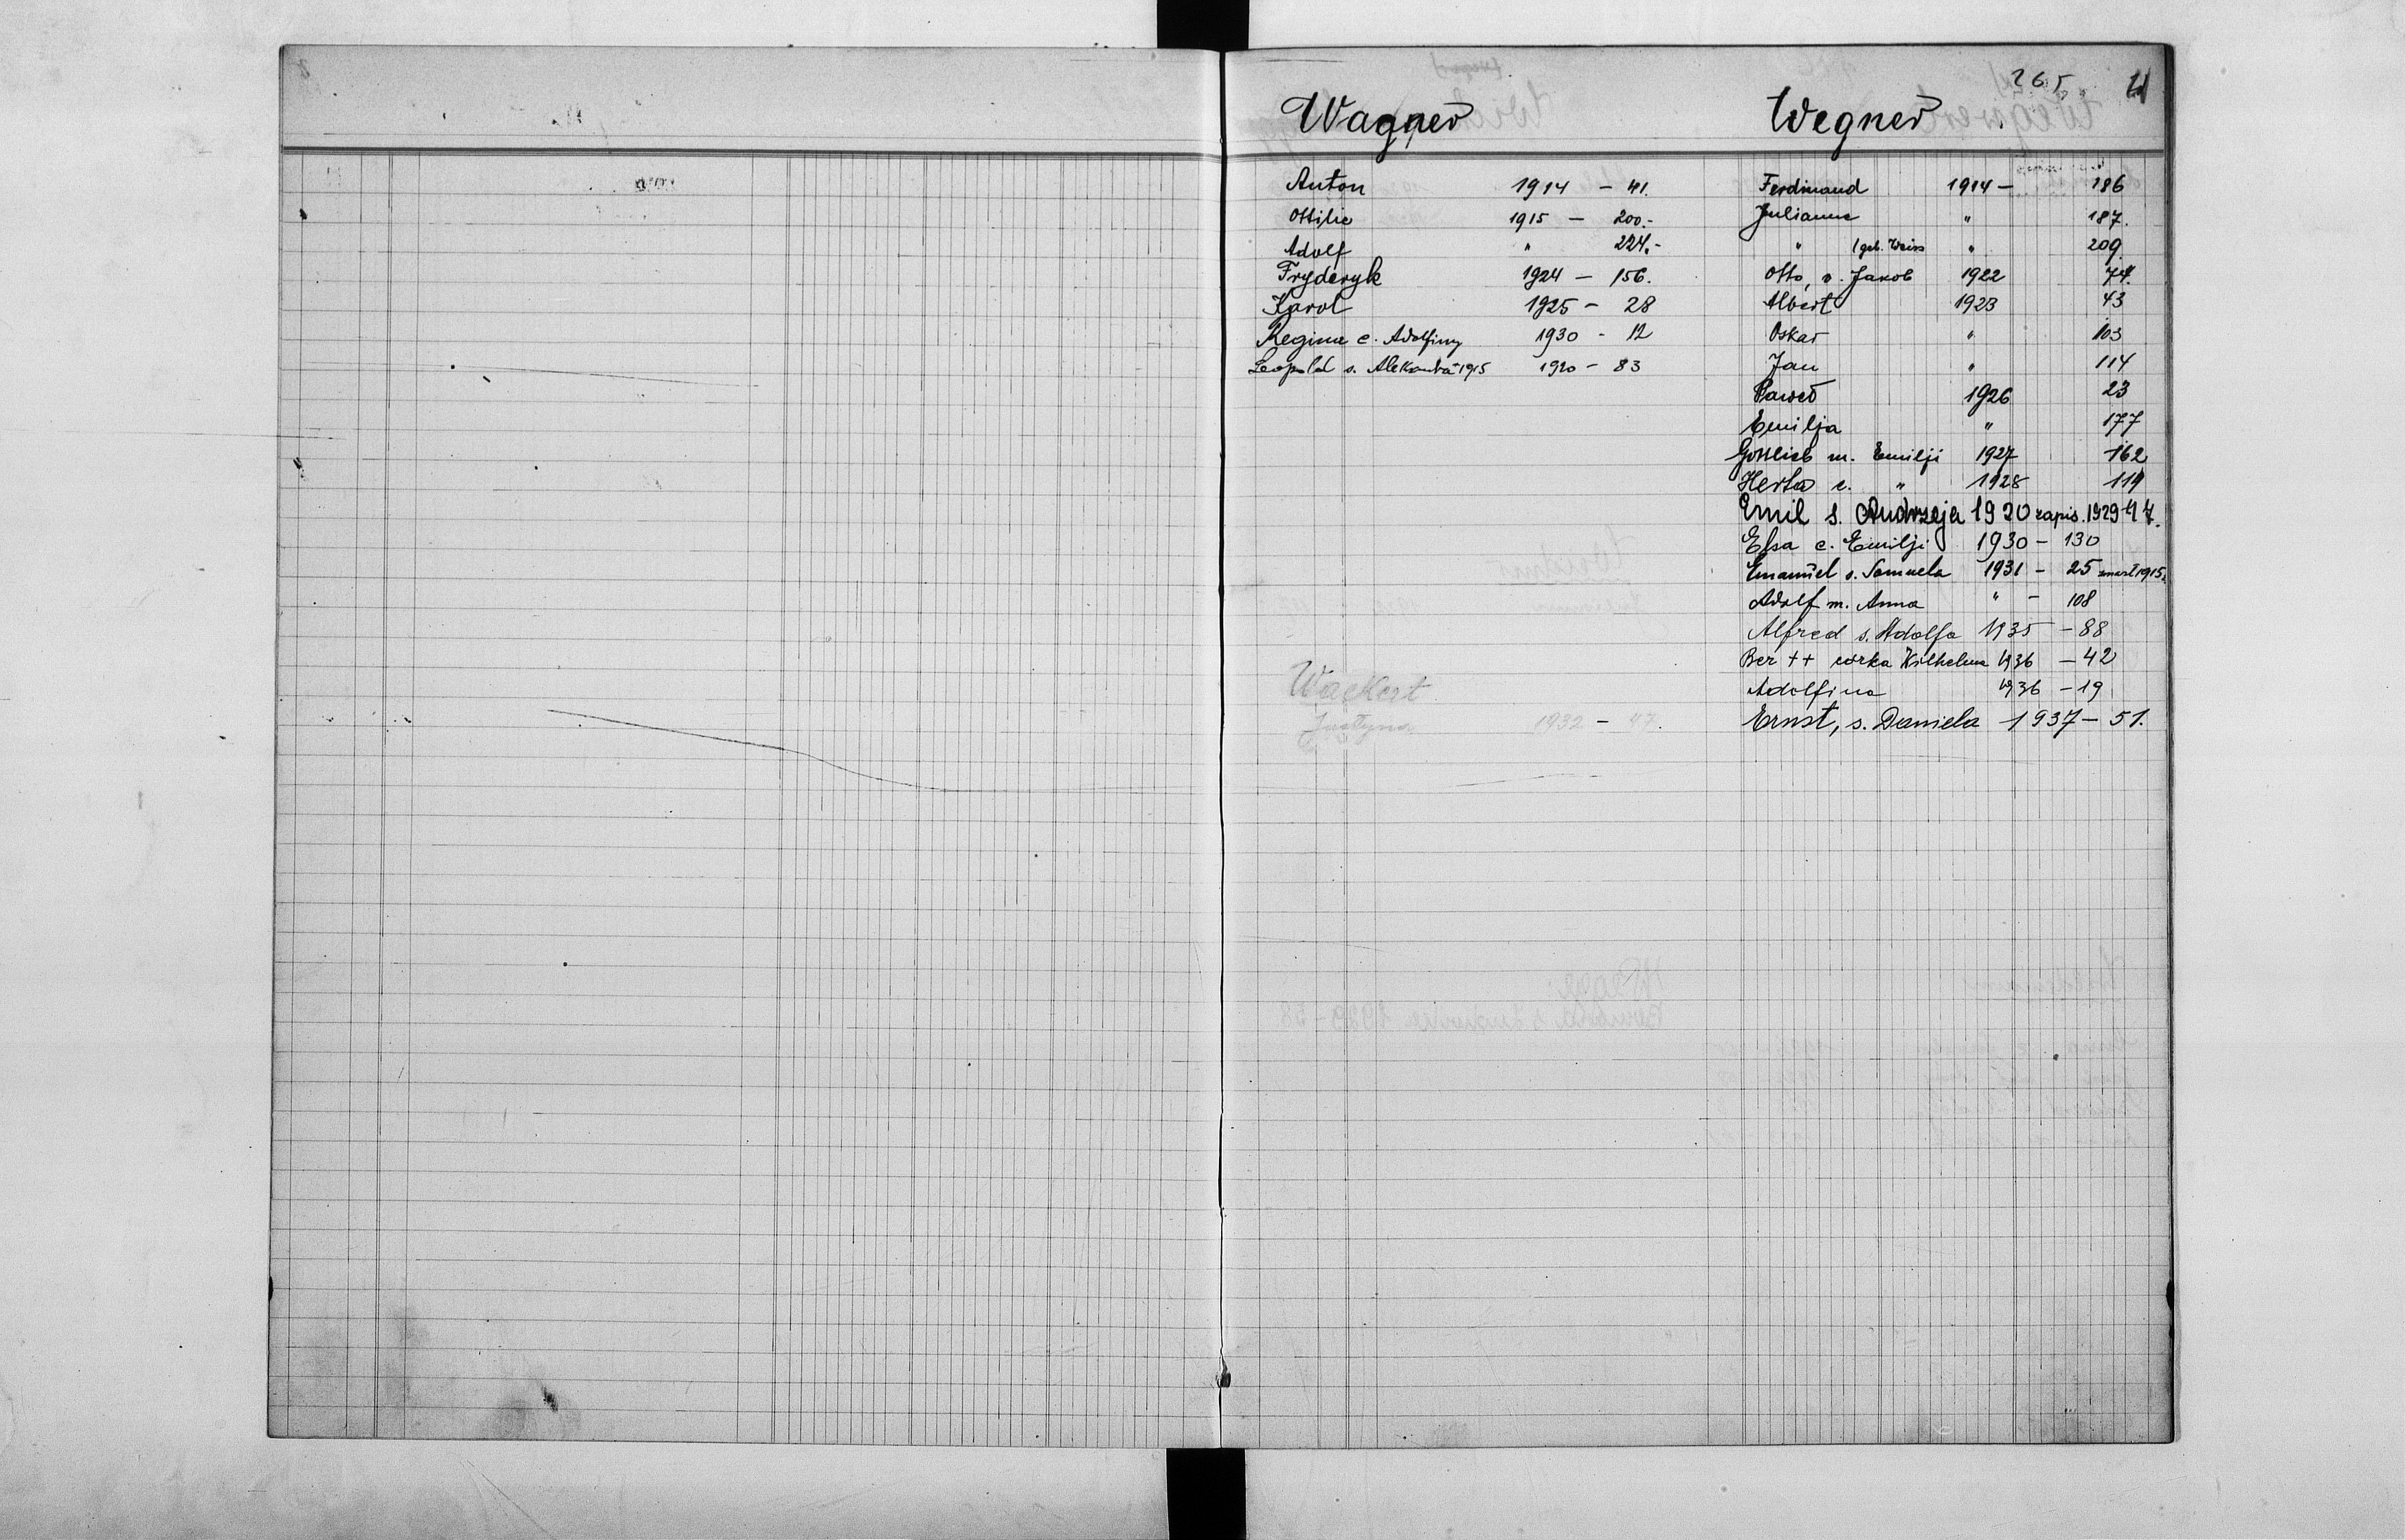 265
Wagner
Anton 1914 - 41.
Ottilie 1915 - 200.-
Adolf " 224.-
Fryderyk 1924 - 156.
Karol 1925 - 28
Regina c. Adolfiny 1930 - 12
Leopold s. Aleksandra 1915 1920 - 83
Wackert
Justyna 1932 - 47.
Wegner
Ferdinand 1914 - 186
Julianne " 187.
" (geb. Weiss " 209
Otto, s. Jakob 1922 74.
Albert 1923 43
Oskar " 103
Jan " 114
Paweł 1926 23
Emilja " 177
Gottlieb m. Emilji 1927 162
Herta c. " 1928 119
Emil s. Andrzeja 1920 zapis. 1929 47.
Elsa c. Emilji 1930 - 130
Emanuel s. Samuela 1931 - 25 zmarł 1915
Adolf m. Anna " - 108
Alfred s. Adolfa 1935 - 88
Ber †† córka Wilhelma 1936 - 42
Adolfina 1936 - 19
Ernst, s. Daniela 1937 - 51.